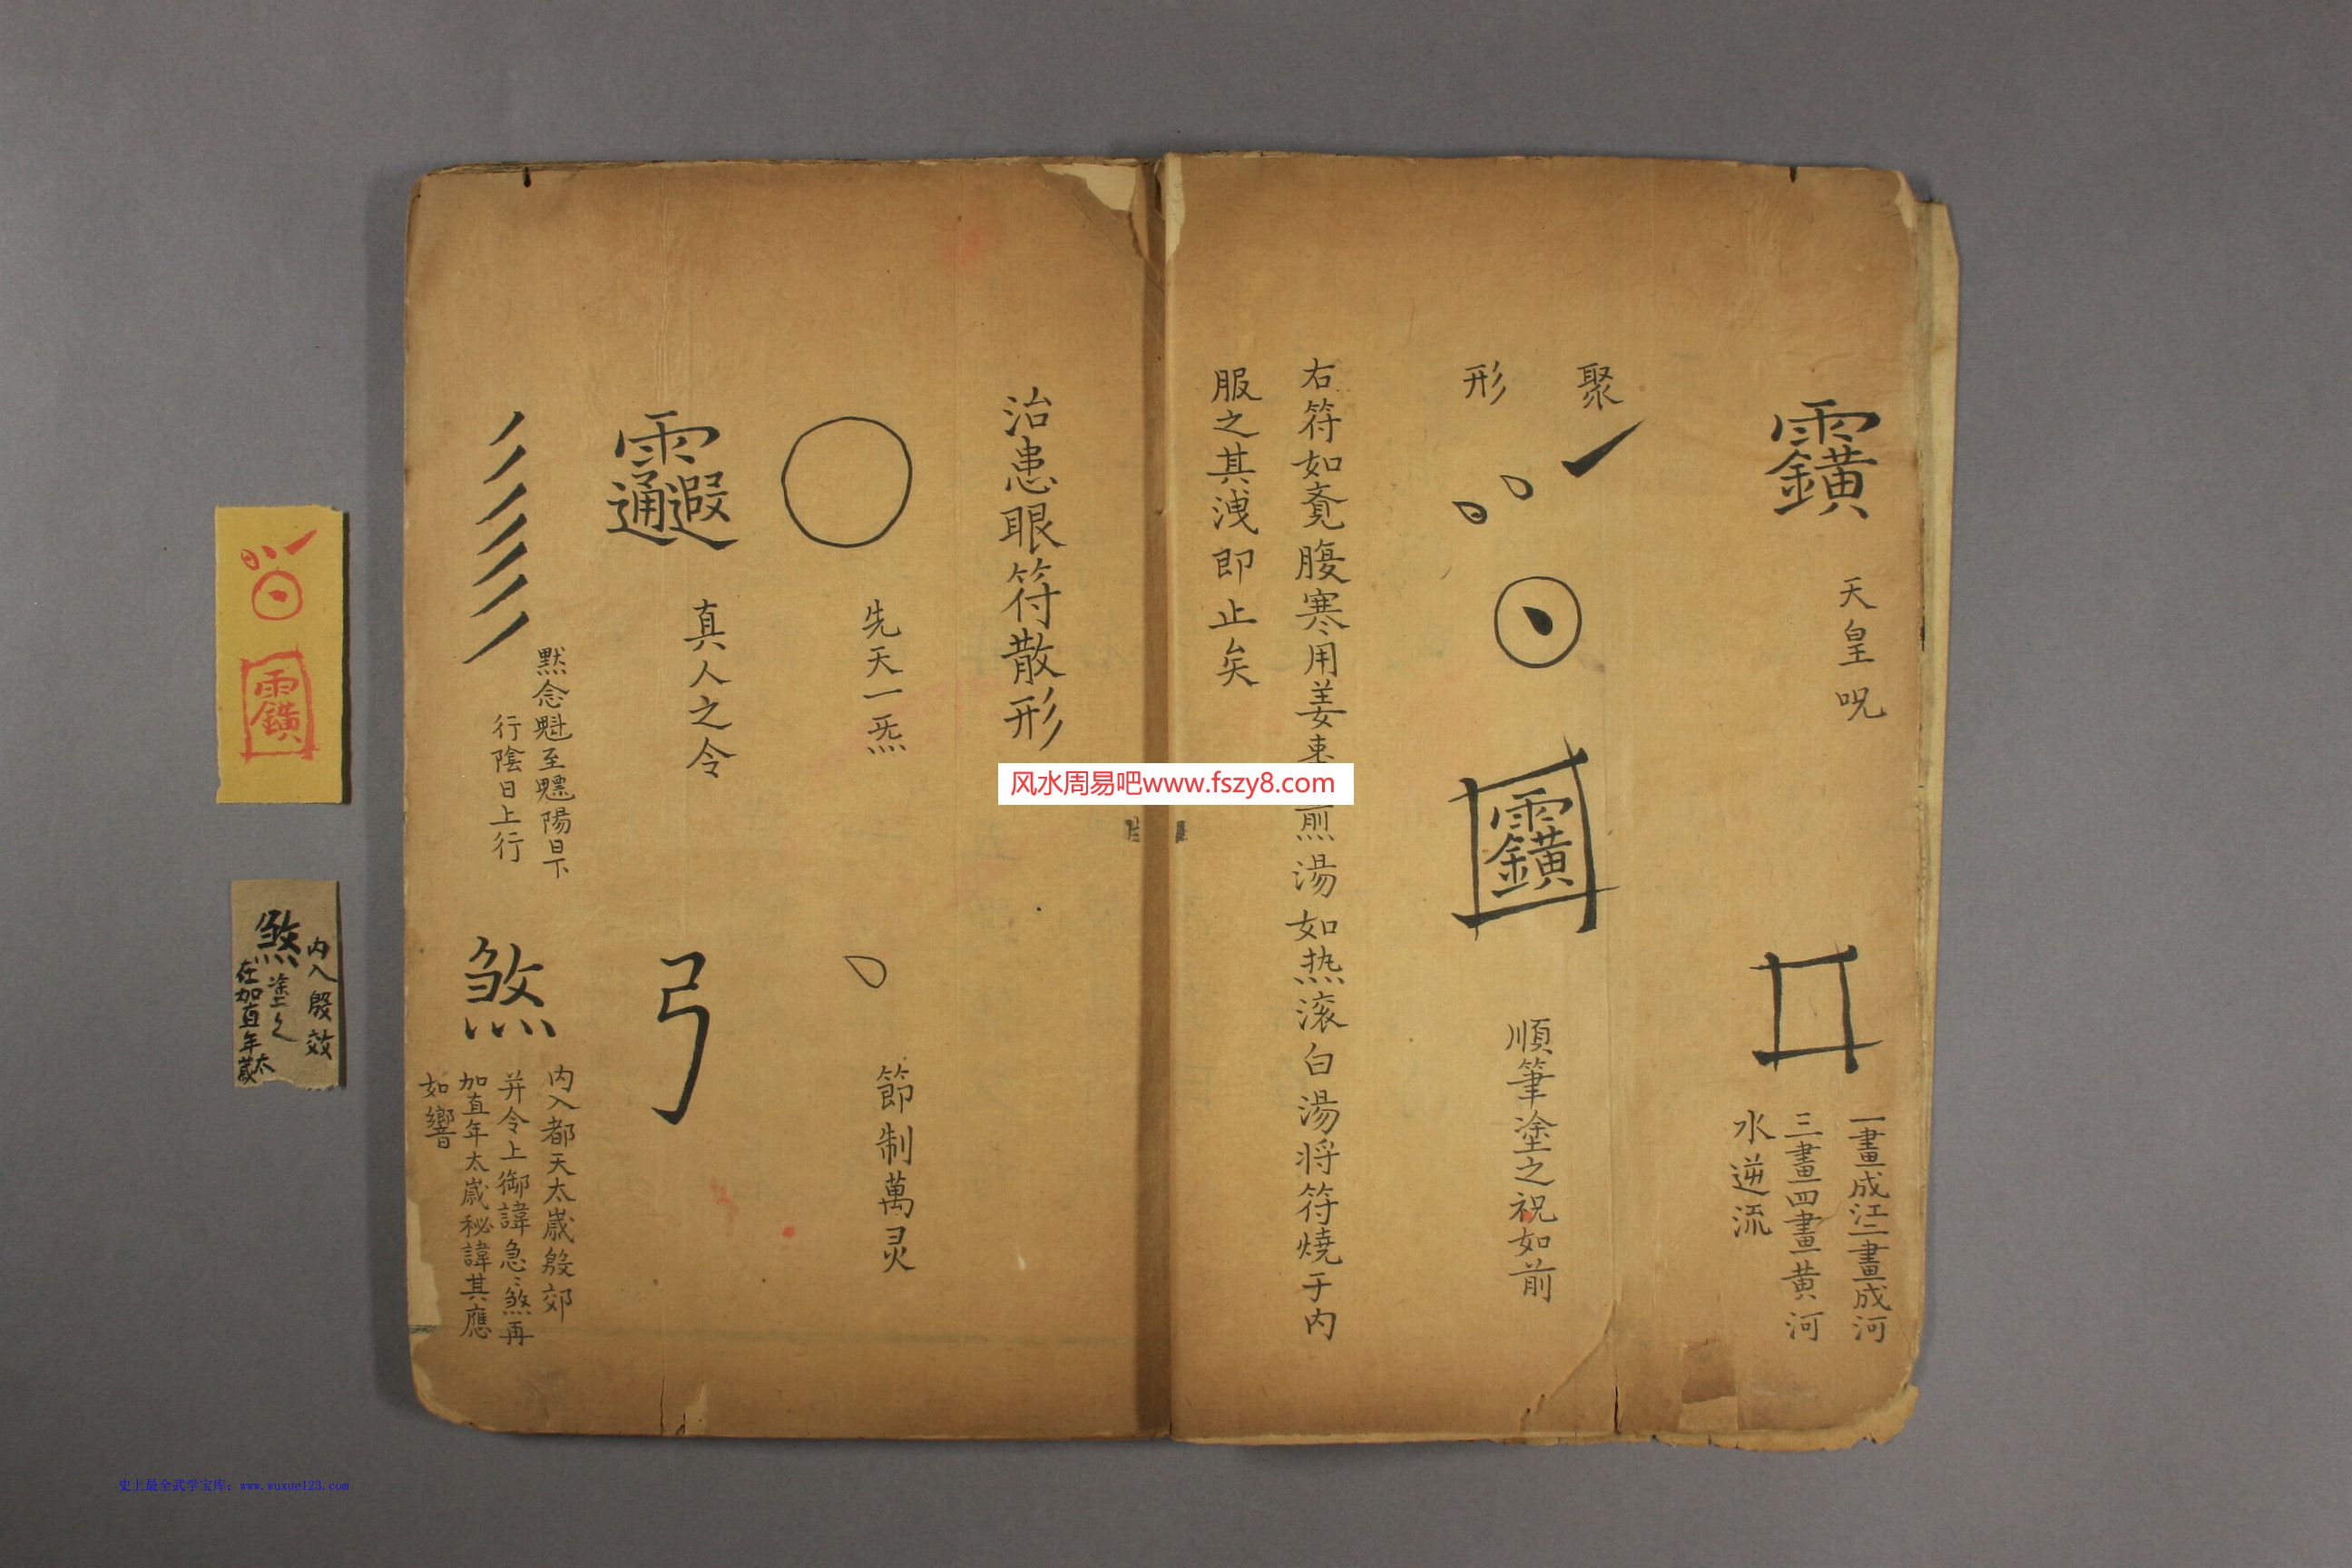 天皇呪
一畫成江二畫成河
三畫四畫黄河
水逆流
聚
形
順筆塗之祝如前
右符如覔腹寒用姜枣煎湯如热滚白湯将符燒于内
服之其洩即止矣
治患眼符散形
先天一炁
節制萬灵
真人之令
弓
黙念魁至魒陽日下
行陰日上行
煞
内入都天太歳殷郊
并令上御諱急〻煞再
加直年太歳秘諱其應
如響
内入殷效
煞塗之
在加直年太歲
风水周易吧www.fszy8.com
史上最全武学宝库：www.wuxue123.com